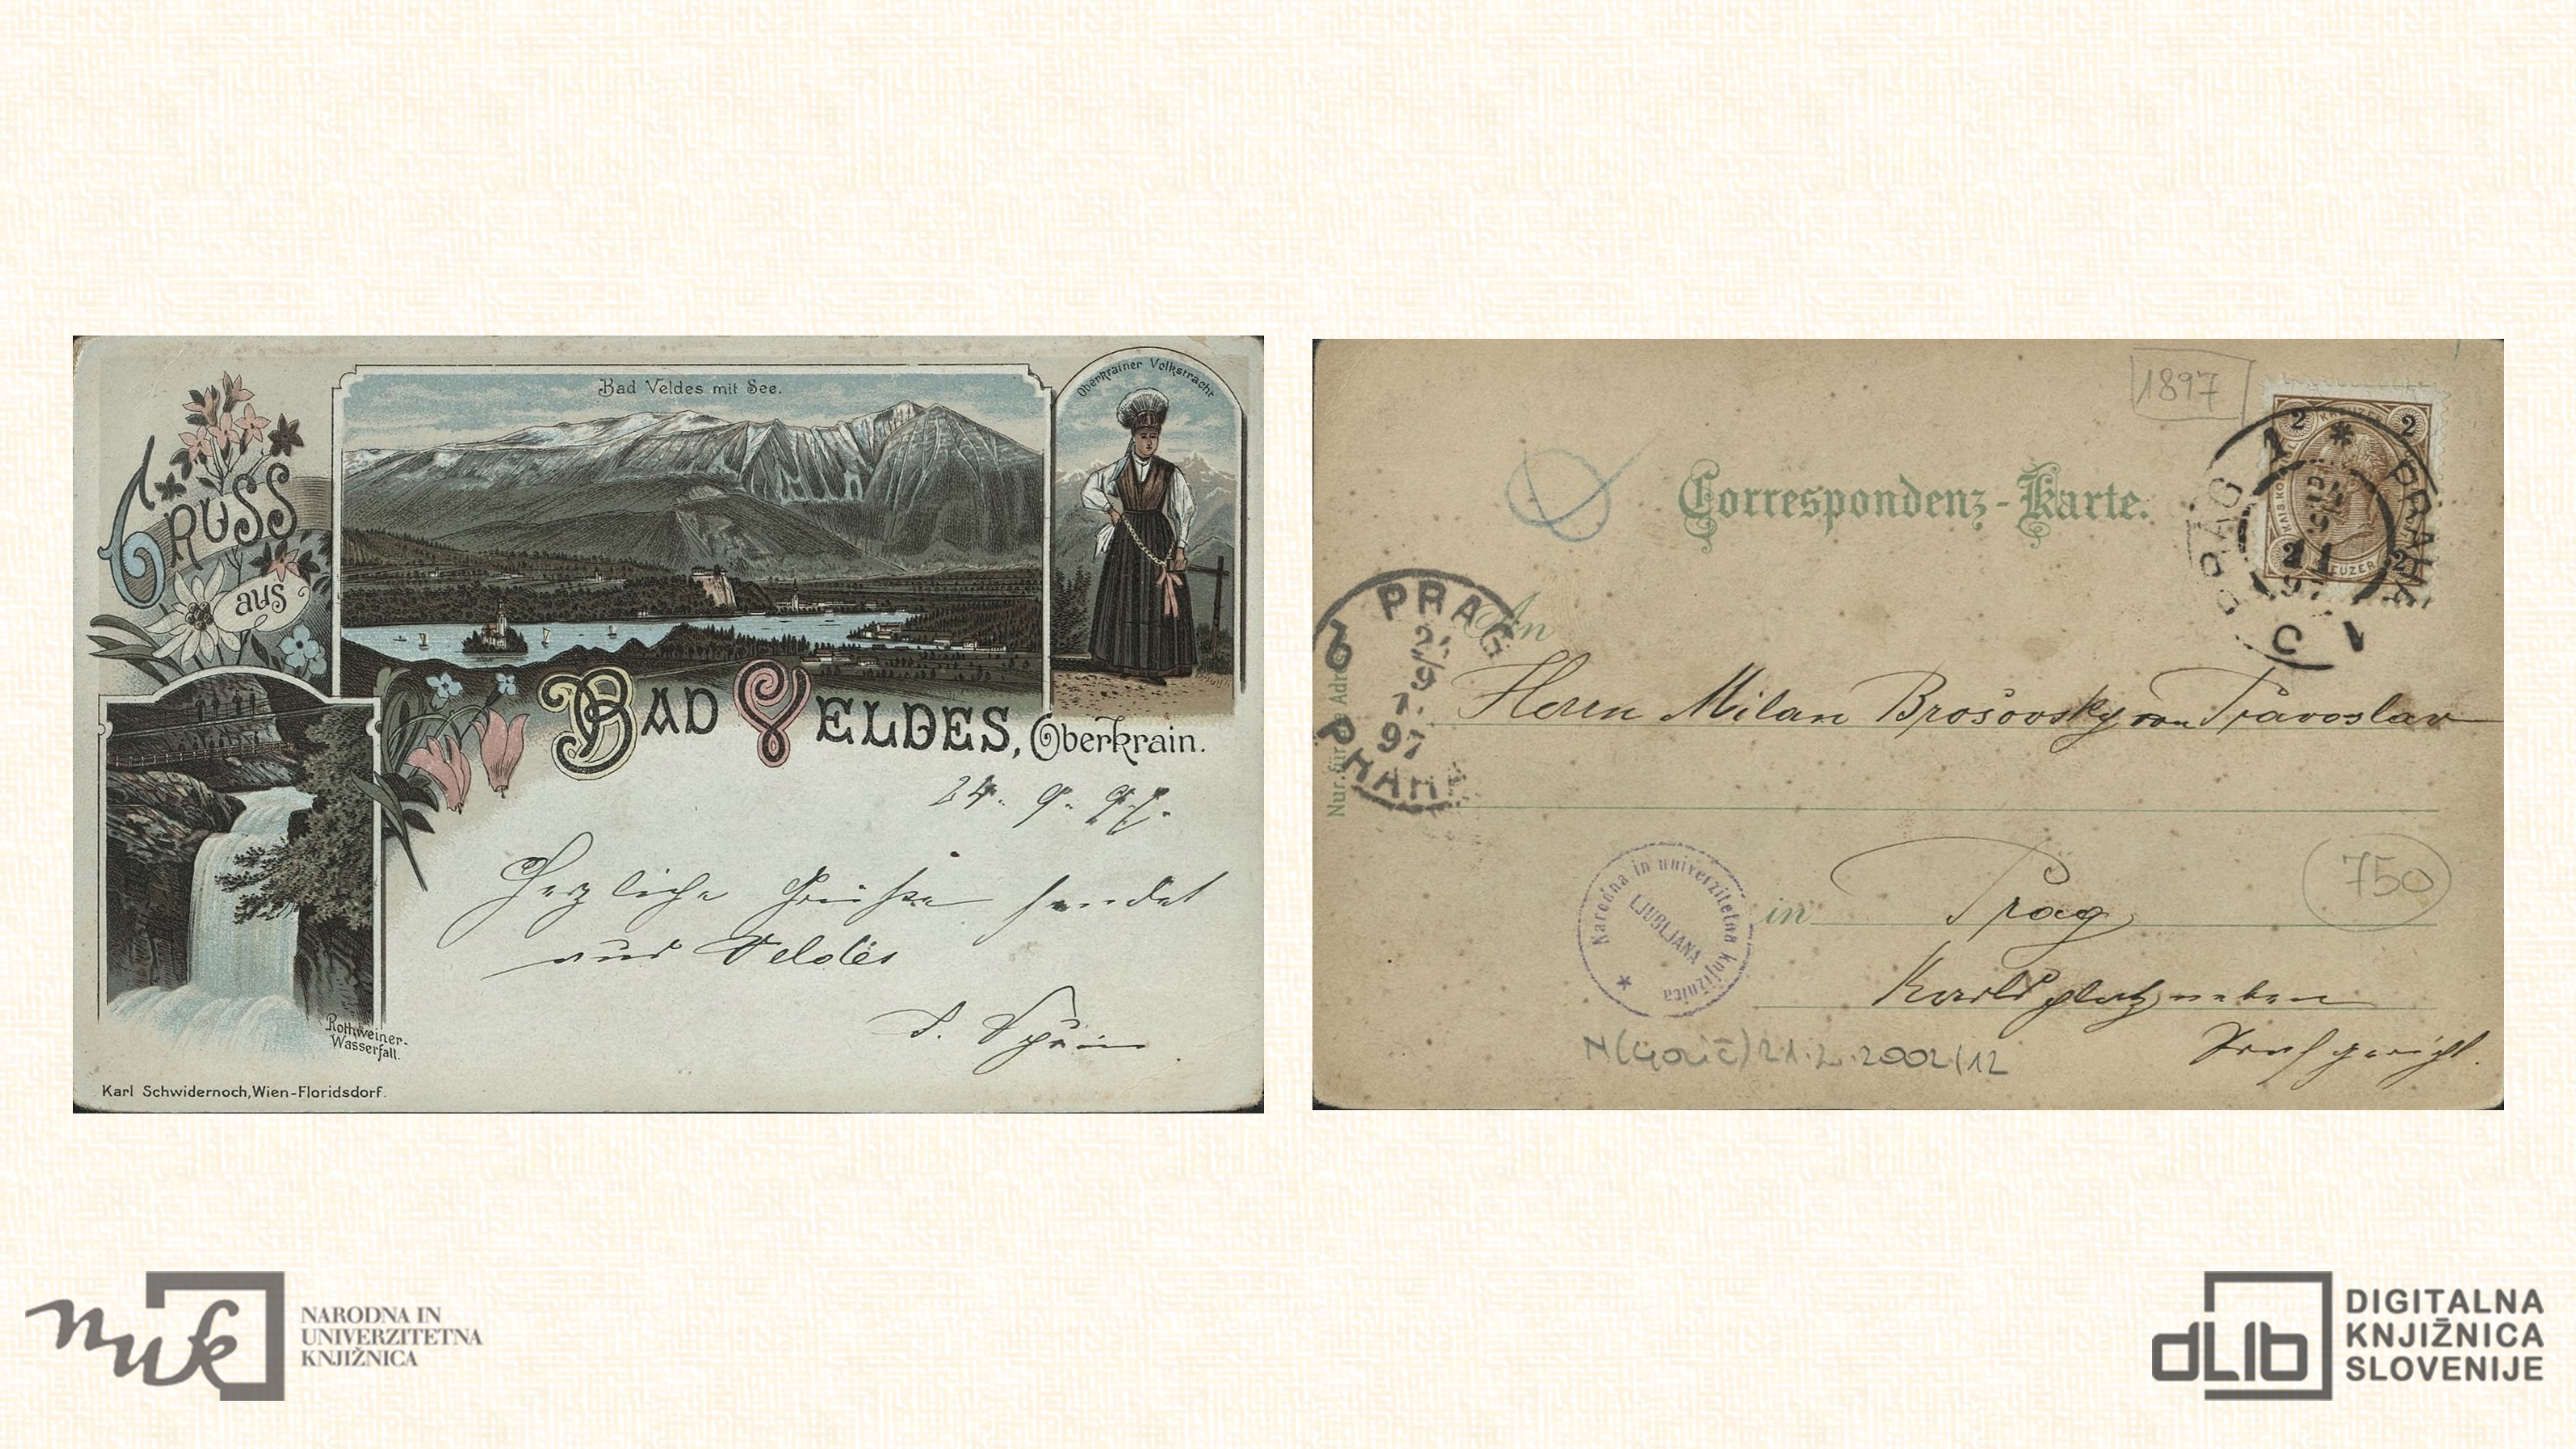 Gruss
aus
Bad Veldes mit See.
Oberkrainer Volkstracht
Bad Veldes, Oberkrain.
24. 9. 97.
Herzliche Grüße sendet
aus Veldes
Rothweiner-
Wasserfall.
Karl Schwidernoch, Wien-Floridsdorf.
1897
2 KREUZER 2
2 2
PRAG 1 * PRAHA
Correspondenz-Karte.
PRAG
9
7.
97
PRAHA
An
Nur für die Adresse
Herrn Milan Brošovsky von Pravoslav
750
Narodna in univerzitetna knjižnica
LJUBLJANA
in Prag
Karlsplatz neben
Strafgericht.
N(Gorič) 21.2.2002/12
nuk
NARODNA IN
UNIVERZITETNA
KNJIŽNICA
dLib
DIGITALNA
KNJIŽNICA
SLOVENIJE